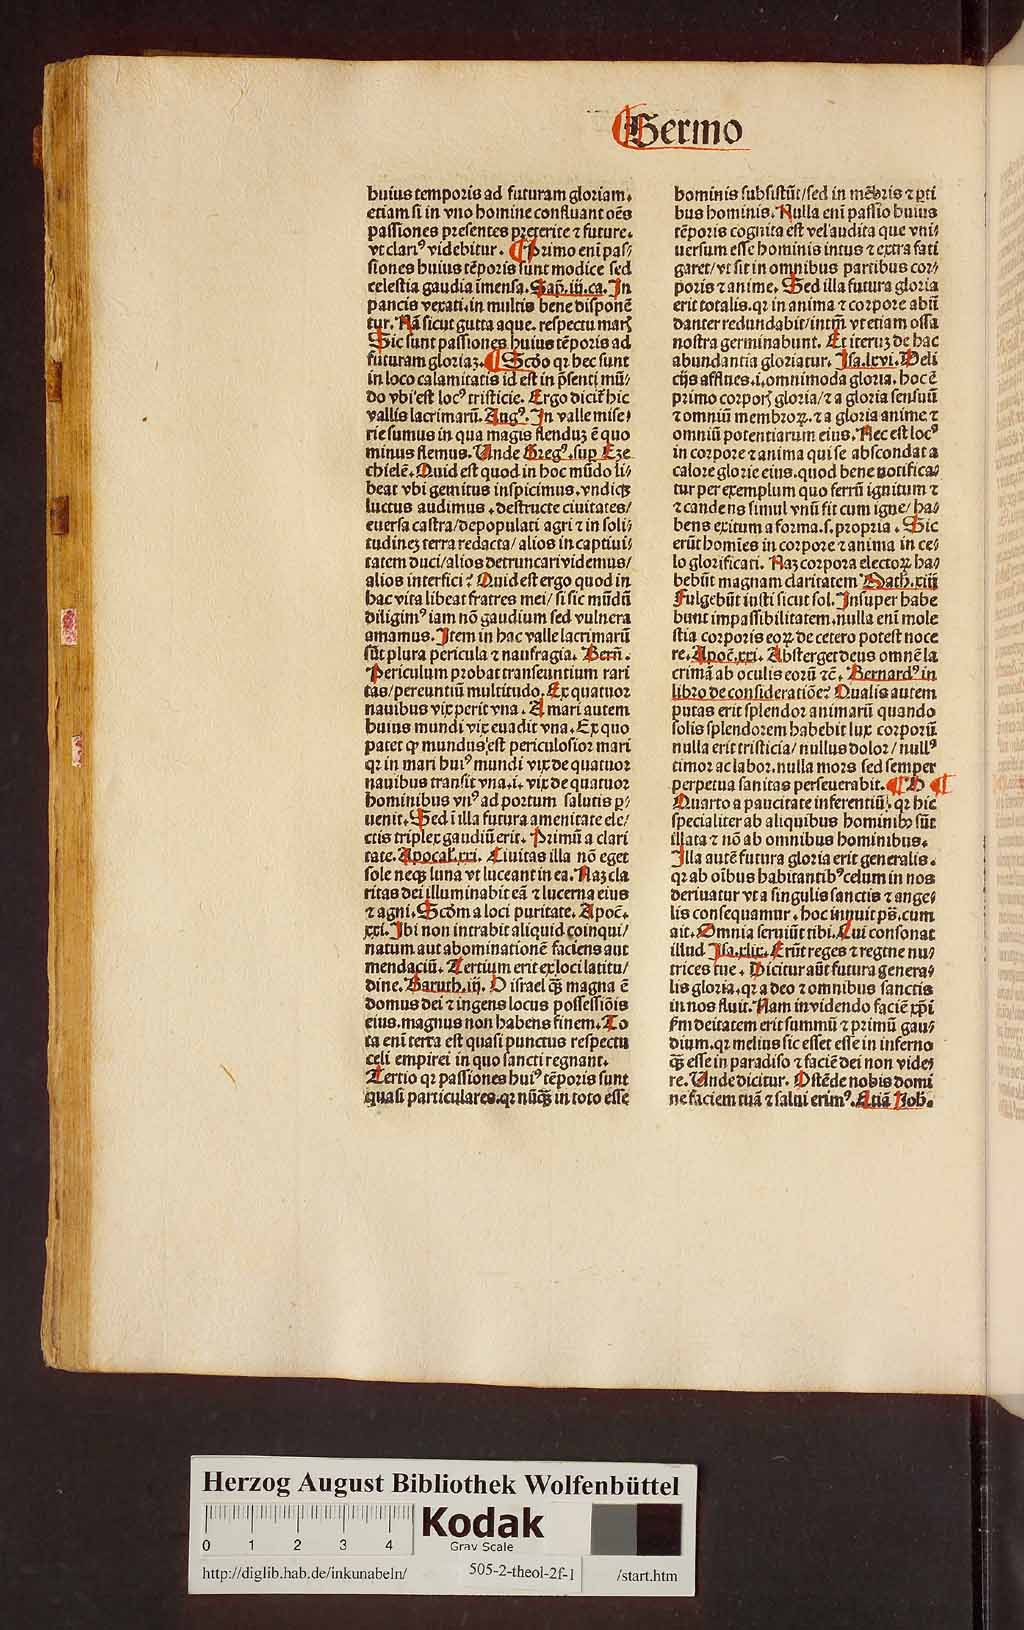 ¶Sermo
huius temporis ad futuram gloriam.
etiam si in vno homine confluant oēs
passiones presentes preterite ⁊ future.
vt clariꝰ videbitur. ¶ Primo eni pas⸗
siones huius tēporis sunt modice sed
celestia gaudia imensa. Sap̄. iij. ca. In
paucis vexati. in multis bene disponē
tur. Nā sicut gutta aque. respectu marꝭ
Sic sunt passiones huius tēporis ad
futuram gloriaꝫ. ¶ Scd̄o qꝛ hec sunt
in loco calamitatis id est in p̄senti mū/
do vbi est locꝰ tristicie. Ergo dicit̄ hic
vallis lacrimarū. Augꝰ. In valle mise⸗
rie sumus in qua magis flenduꝫ ē quo
minus flemus. Unde Gregꝰ. sup̄ Eze
chielē. Quid est quod in hoc mūdo li⸗
beat vbi gemitus inspicimus. vndiqꝫ
luctus audimus. destructe ciuitates/
euersa castra/depopulati agri ⁊ in soli⸗
tudineꝫ terra redacta/ alios in captiui⸗
tatem duci/alios detruncari videmus/
alios interfici? Quid est ergo quod in
hac vita libeat fratres mei/ si sic mūdū
diligimꝰ iam nō gaudium sed vulnera
amamus. Item in hac valle lacrimarū
sūt plura pericula ⁊ naufragia. Berñ.
Periculum probat transeuntium rari
tas/pereuntiū multitudo. Ex quatuor
nauibus vix perit vna. A mari autem
huius mundi vix euadit vna. Ex quo
patet ꝙ mundus est periculosior mari
qꝛ in mari huiꝰ mundi vix de quatuor
nauibus transit vna. i. vix de quatuor
hominibus vnꝰ ad portum salutis ꝑ⸗
uenit. Sed i illa futura amenitate ele/
ctis triplex gaudiū erit. Primū a clari
tate. Apocal. xxi. Ciuitas illa nō eget
sole neqꝫ luna vt luceant in ea. Naꝫ cla
ritas dei illuminabit eā ⁊ lucerna eius
⁊ agni. Scdm̄ a loci puritate. Apoc̄.
xxi. Ibi non intrabit aliquid coinqui/
natum aut abominationē faciens aut
mendaciū. Tertium erit ex loci latitu/
dine. Baruth. iij. O israel qꝫ magna ē
domus dei ⁊ ingens locus possessiōis
eius. magnus non habens finem. To
ta eni terra est quasi punctus respectu
celi empirei in quo sancti regnant.
Tertio qꝛ passiones huiꝰ tēporis sunt
quasi particulares. qꝛ nūqꝫ in toto esse
hominis subsistūt/sed in mēbris ⁊ ꝑti
bus hominis. Nulla eni passio huius
tēporis cognita est vel audita que vni⸗
uersum esse hominis intus ⁊ extra fati
garet/vt sit in omnibus partibus cor⸗
poris ⁊ anime. Sed illa futura gloria
erit totalis. qꝛ in anima ⁊ corpore abū
danter redundabit/intm̄ vt etiam ossa
nostra germinabunt. Et iteruꝫ de hac
abundantia gloriatur. Isa. lxvi. Deli
cijs afflues. i. omnimoda gloria. hoc ē
primo corporꝭ gloria/⁊ a gloria sensuū
⁊ omniū membroꝝ. ⁊ a gloria anime ⁊
omniū potentiarum eius. Nec est locꝰ
in corpore ⁊ anima qui se abscondat a
calore glorie eius. quod bene notifica⸗
tur per exemplum quo ferrū ignitum ⁊
⁊ candens simul vnū fit cum igne/ha⸗
bens exitum a forma. s. propria. Sic
erūt homines in corpore ⁊ anima in ce⸗
lo glorificati. Naꝫ corpora electoꝝ ha⸗
bebūt magnam claritatem Math. xiij
Fulgebūt iusti sicut sol. Insuper habe
bunt impassibilitatem. nulla eni mole
stia corporis eoꝝ de cetero potest noce
re. Apoc̄. xxi. Absterget deus omnē la
crimā ab oculis eorū ⁊c̄. Bernardꝰ in
libro de consideratiōe? Qualis autem
putas erit splendor animarū quando
solis splendorem habebit lux corporū
nulla erit tristicia/ nullus dolor/ nullꝰ
timor ac labor. nulla mors sed semper
perpetua sanitas perseuerabit. ¶ D ¶
Quarto a paucitate inferentiū. qꝛ hic
specialiter ab aliquibus hominibꝫ sūt
illata ⁊ nō ab omnibus hominibus.
Illa autē futura gloria erit generalis.
qꝛ ab oībus habitantibꝰ celum in nos
deriuatur vt a singulis sanctis ⁊ ange⸗
lis consequamur. hoc innuit ps̄. cum
ait. Omnia seruiūt tibi. Cui consonat
illud Isa. xlix. Erūt reges ⁊ regine nu⸗
trices tue. Dicitur aūt futura genera⸗
lis gloria. qꝛ a deo ⁊ omnibus sanctis
in nos fluit. Nam in videndo faciē xp̄i
fm deitatem erit summū ⁊ primū gau⸗
dium. qꝛ melius sic esset esse in inferno
qꝫ esse in paradiso ⁊ faciē dei non vide⸗
re. Unde dicitur. Ostēde nobis domi
ne faciem tuā ⁊ salui erimꝰ. Etiā Joh̄.
Herzog August Bibliothek Wolfenbüttel
0 1 2 3 4
Kodak
Gray Scale
http://diglib.hab.de/inkunabeln/ 505-2-theol-2f-1 /start.htm